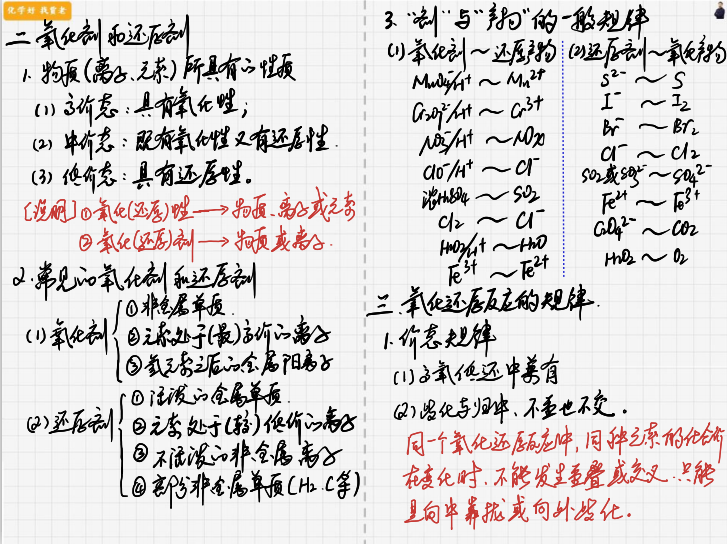 化学好 我寰老
二、氧化剂和还原剂
1. 物质(离子、元素)所具有的性质
(1) 高价态：具有氧化性；
(2) 中价态：既有氧化性又有还原性.
(3) 低价态：具有还原性。
[说明] ①氧化(还原)性⟶物质、离子或元素
②氧化(还原)剂⟶物质或离子.
2. 常见的氧化剂和还原剂
(1) 氧化剂
①非金属单质.
②元素处于(最)高价的离子
③氢元素之后的金属阳离子
(2) 还原剂
①活泼的金属单质.
②元素处于(较)低价的离子
③不活泼的非金属离子
④部分非金属单质(H₂.C等)
3. "剂"与"产物"的一般规律
(1) 氧化剂～还原产物
MnO₄⁻/H⁺～Mn²⁺
Cr₂O₇²⁻/H⁺～Cr³⁺
NO₃⁻/H⁺～NOx
ClO⁻/H⁺～Cl⁻
浓H₂SO₄～SO₂
Cl₂～Cl⁻
H₂O₂/H⁺～H₂O
Fe³⁺～Fe²⁺
(2) 还原剂～氧化产物
S²⁻～S
I⁻～I₂
Br⁻～Br₂
Cl⁻～Cl₂
SO₂或SO₃²⁻～SO₄²⁻
Fe²⁺～Fe³⁺
C₂O₄²⁻～CO₂
H₂O₂～O₂
三、氧化还原反应的规律.
1. 价态规律
(1) 高氧低还中兼有
(2) 歧化与归中、不重也不交。
同一个氧化还原反应中，同种元素的化合价
在变化时、不能发生重叠或交叉.只能
是向中靠拢或向外歧化。